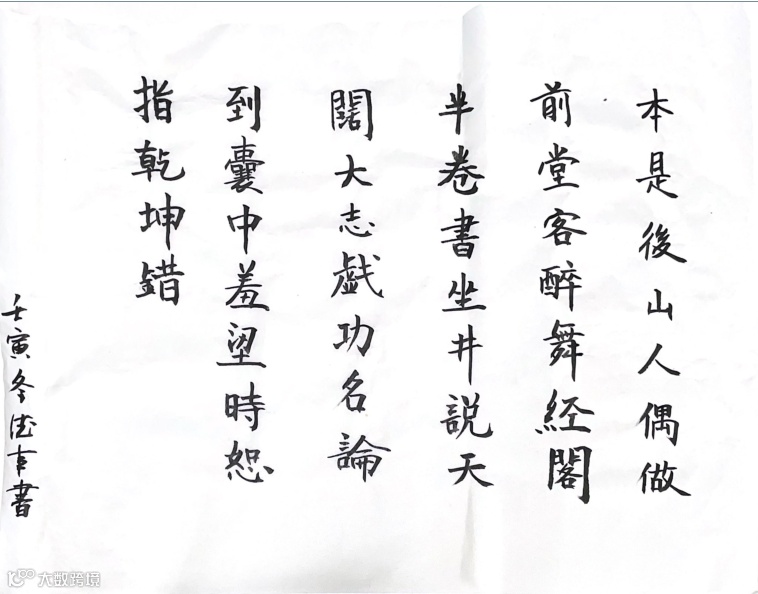 本是後山人偶做
前堂客醉舞経閣
半卷書坐井説天
闊大志戯功名論
到囊中羞望時恕
指乾坤錯
壬寅冬書
大数跨境